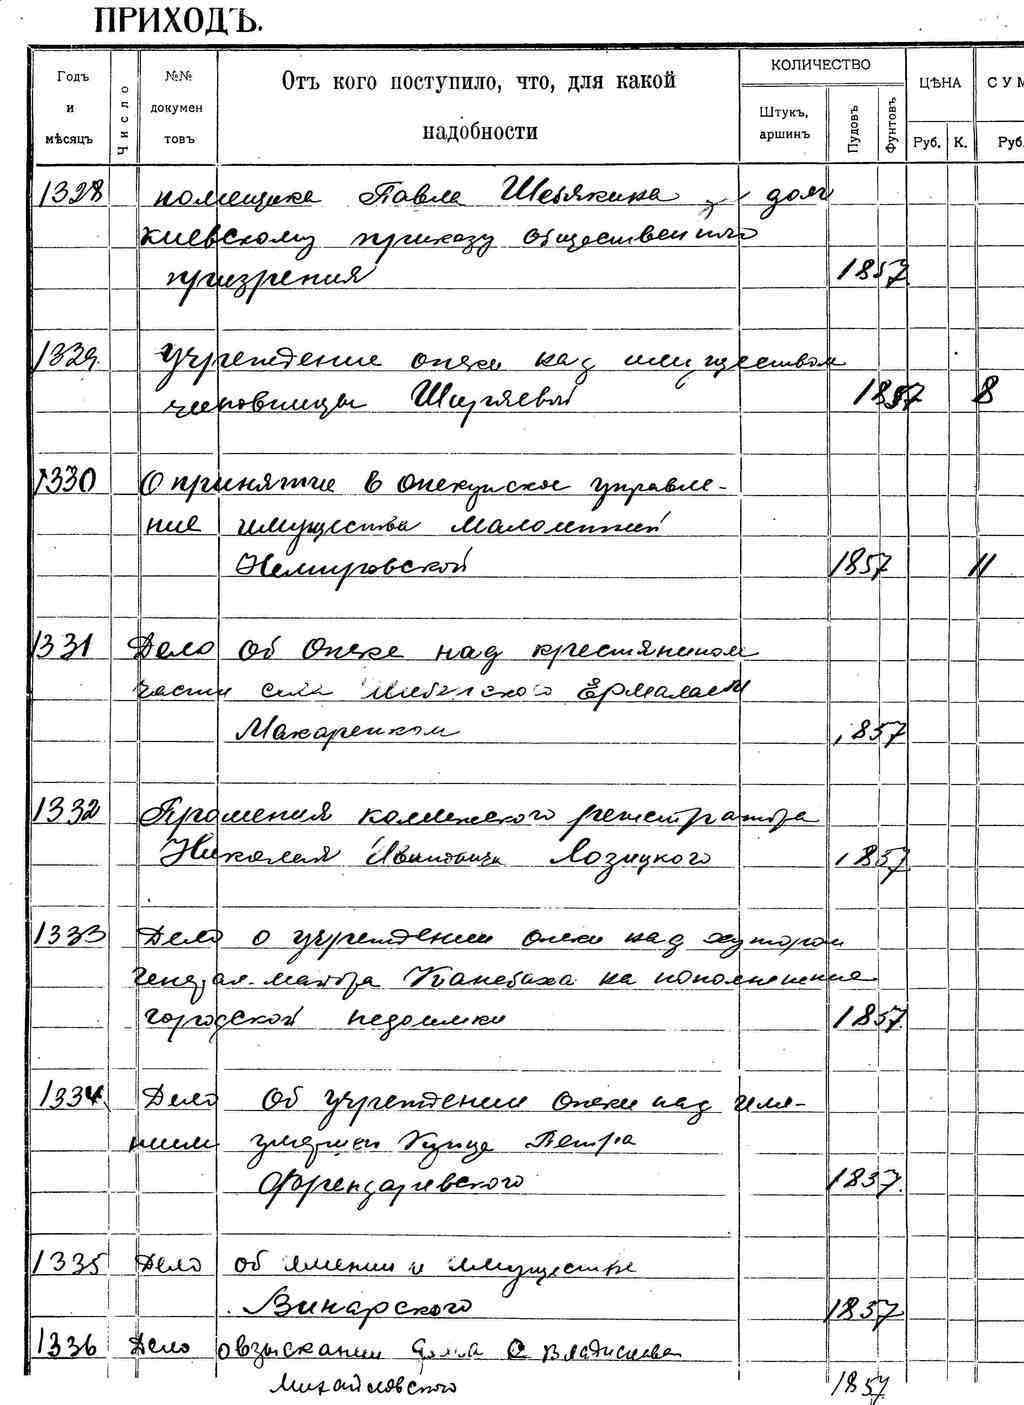 ПРИХОДЪ.
Годъ и мѣсяцъ
Число
№№ докумен товъ
Отъ кого поступило, что, для какой надобности
КОЛИЧЕСТВО
Штукъ, аршинъ
Пудовъ
Фунтовъ
ЦѢНА
Руб. К.
СУМ
Руб.
1328 помещика Павла Шебякина долг
киевскому приказу общественного
призрения 1857
1329 учреждение опеки над имуществом
чиновницы Ширяевой 1857 8
1330 О принятие в опекунское управле-
ние имущества малолетней
Немировской 1857 11
1331 Дело об Опеке над крестянином
части села Ермолаем
Макаренком 1857
1332 Прошения коллежского регистратора
Николая Ивановича Лозицкого 1857
1333 Дело о учреждении опеки над хутором
генерал-майора на пополнение
городской недоимки 1857.
1334 Дело об учреждении опеки над име-
нием умершем Купце Петра
Френдаревского 1857.
1335 Дело об имении и имуществе
Винарского 1857
1336 Дело о взыскании долга с Владислава
Михайловского 1857